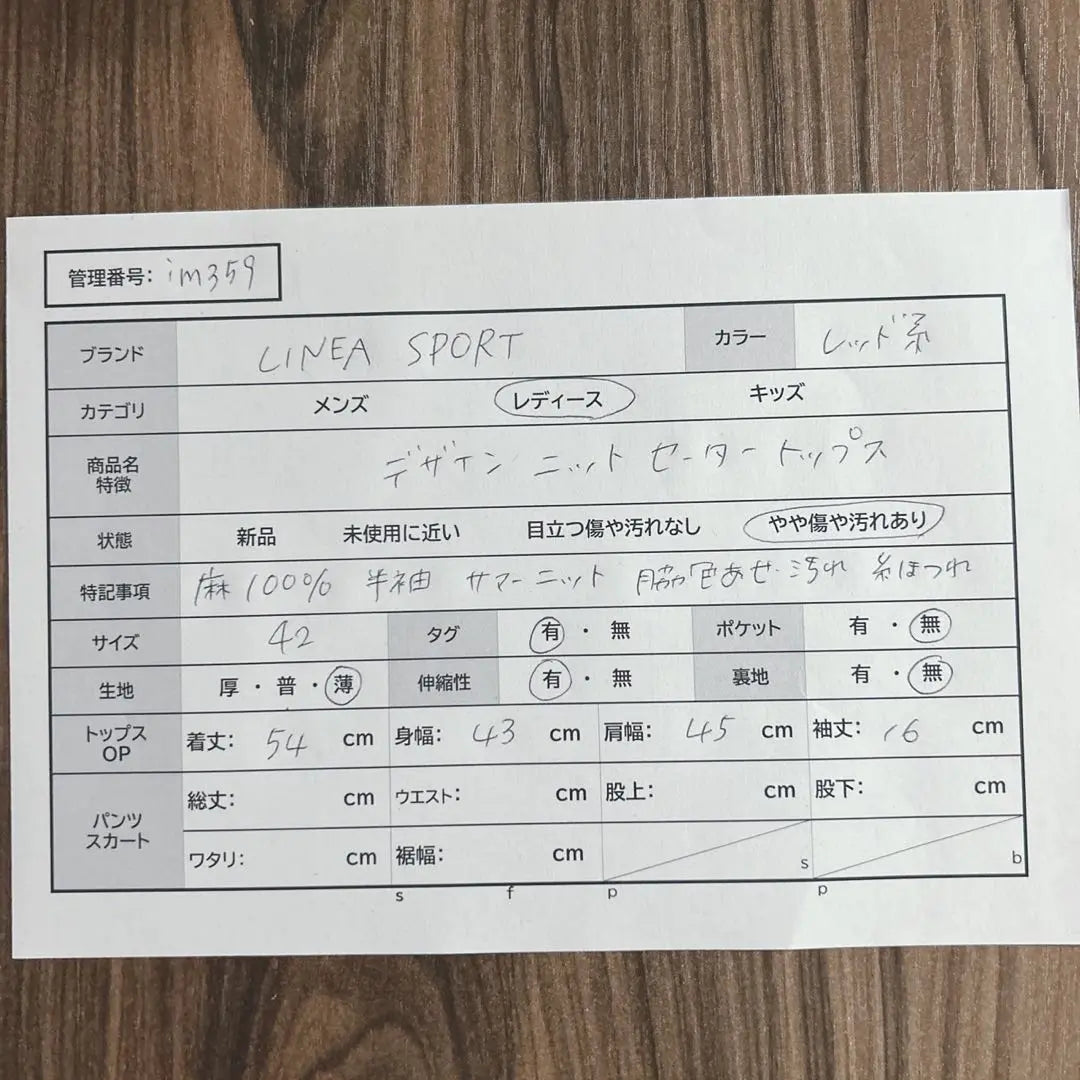 管理番号: im359
ブランド LINEA SPORT カラー レッド系
カテゴリ メンズ レディース キッズ
商品名 特徴 デザイン ニット セーター トップス
状態 新品 未使用に近い 目立つ傷や汚れなし やや傷や汚れあり
特記事項 麻100% 半袖 サマーニット 脇色あせ・汚れ 糸ほつれ
サイズ 42 タグ 有・無 ポケット 有・無
生地 厚・普・薄 伸縮性 有・無 裏地 有・無
トップス OP 着丈: 54 cm 身幅: 43 cm 肩幅: 45 cm 袖丈: 16 cm
パンツ スカート 総丈: cm ウエスト: cm 股上: cm 股下: cm
ワタリ: cm 裾幅: cm s b
s f p p